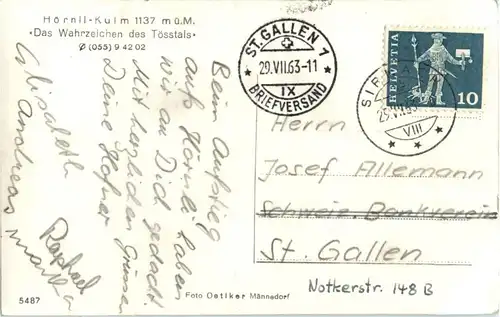 Hörnli-Kulm 1137 m ü.M.
«Das Wahrzeichen des Tösstals»
(055) 9 42 02
Beim Aufstieg
aufs Hörnli haben
wir an Dich gedacht.
Mit herzlichen Grüssen
Deine Hofner
Elisabeth
Andreas
Raphael
Martha
5487
Foto Oetiker Männedorf
ST. GALLEN 1
29.VII.63-11
IX
BRIEFVERSAND
HELVETIA
10
VIII
Herrn
Josef Allemann
Schweiz. Bankverein
St. Gallen
Notkerstr. 148 B